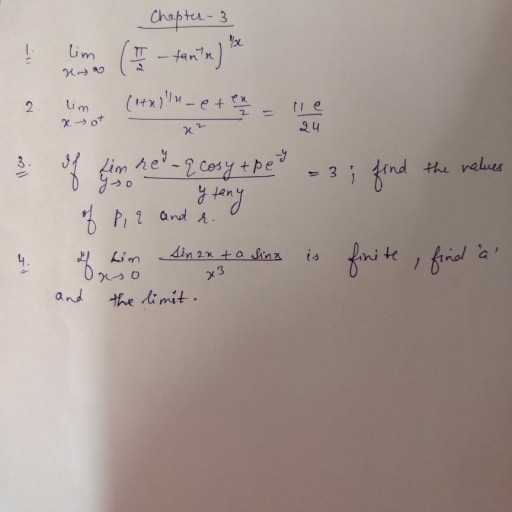 Chapter-3
1. lim x→∞ (π/2 - tan⁻¹x)^(1/x)
2. lim x→0⁺ ((1+x)^(1/x) - e + ex/2)/x² = 11e/24
3. If lim y→0 (re^y - q cosy + pe^-y)/(y tany) = 3 ; find the values
of p, q and r.
4. If Lim x→0 (sin2x + a sinx)/x³ is finite, find 'a'
and the limit.